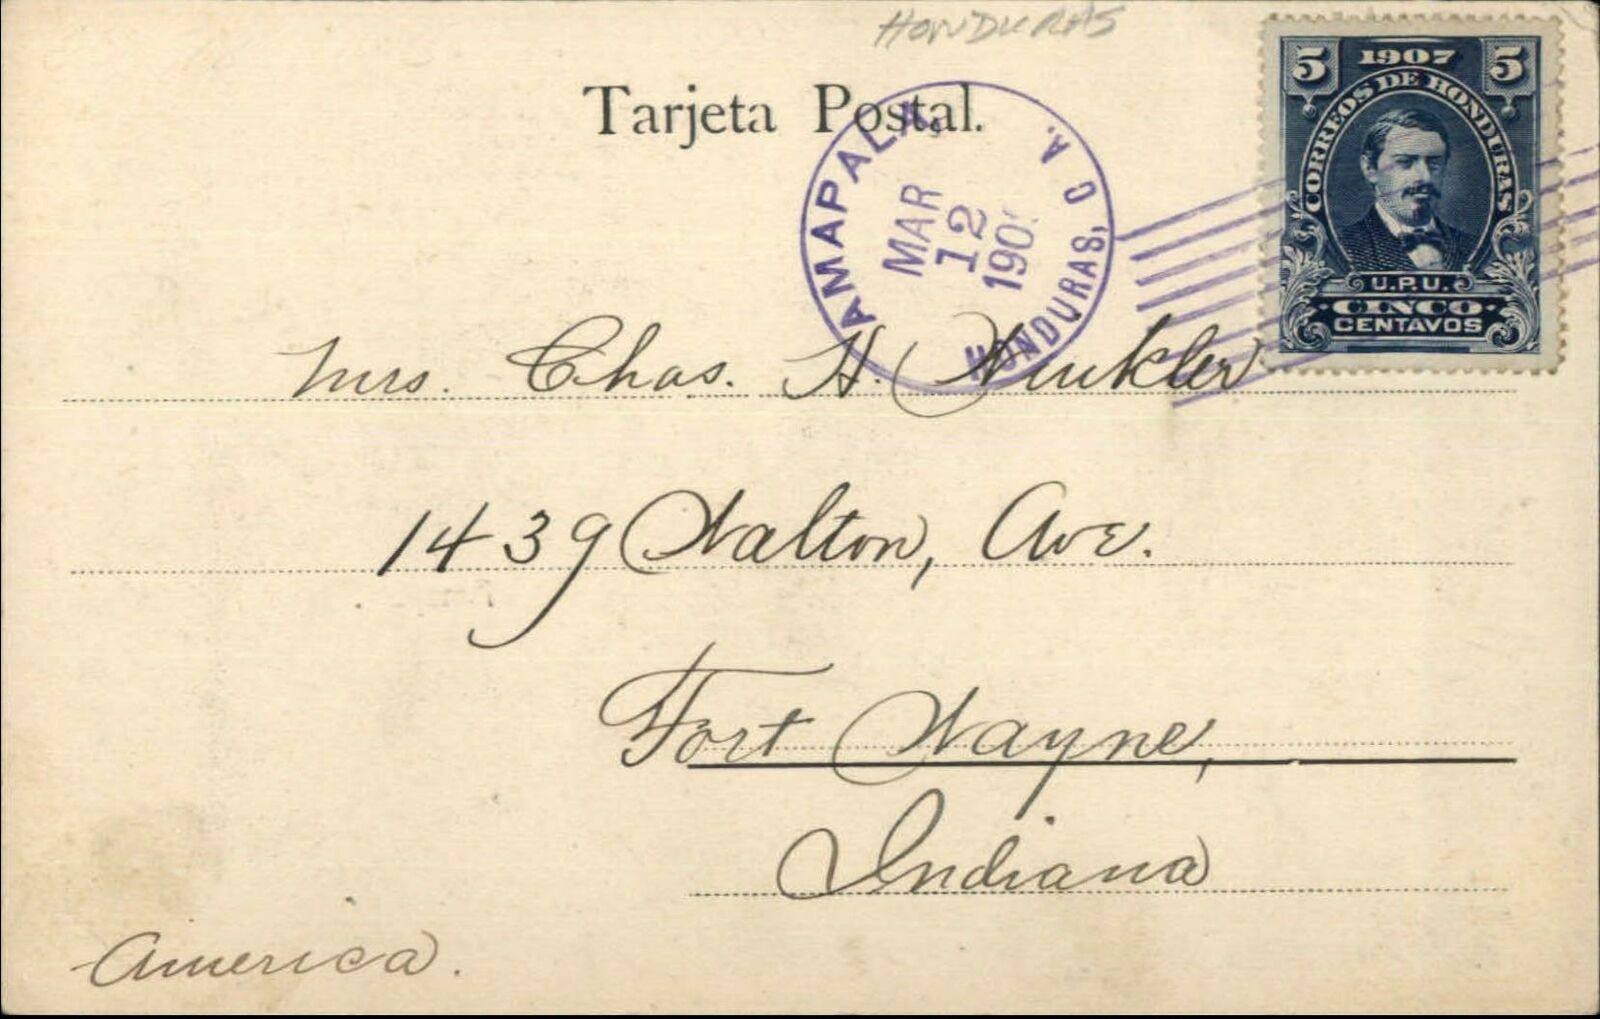 HONDURAS
Tarjeta Postal.
AMAPALA,
HONDURAS, C. A.
MAR
12
190
5 1907 5
CORREOS DE HONDURAS
U.P.U.
CINCO
CENTAVOS
Mrs. Chas. H. Winkler
1439 Walton, Ave.
Fort Wayne,
Indiana
America.